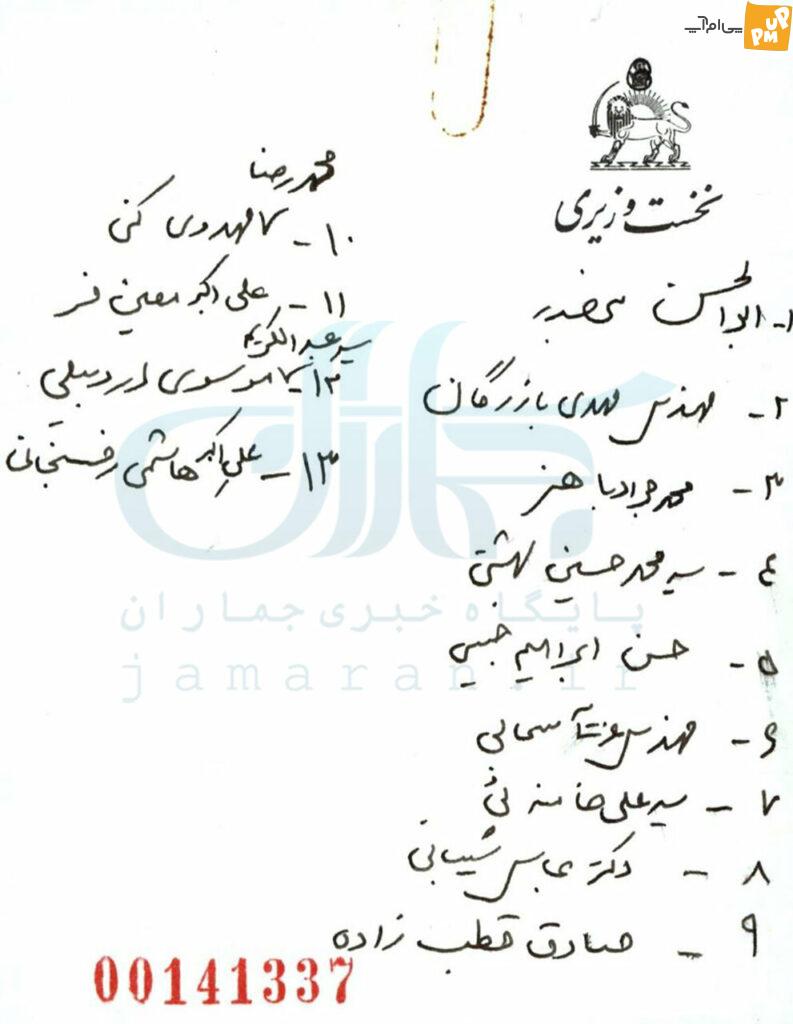 پی‌ام‌آپ
PM UP
نخست وزیری
۱- ابوالحسن
۲- مهندس مهدی بازرگان
۳- محمد جواد باهنر
۴- سید محمد حسینی بهشتی
۵- حسن ابراهیم حبیبی
۶- مهندس عزت‌ا سحابی
۷- سید علی خامنه‌ئی
۸- دکتر عباس شیبانی
۹- صادق قطب زاده
محمدرضا
۱۰- مهدوی کنی
۱۱- علی اکبر معین فر
سید عبدالکریم
۱۲- موسوی اردبیلی
۱۳- علی اکبر هاشمی رفسنجانی
جماران
پایگاه خبری جماران
jamaran.ir
00141337